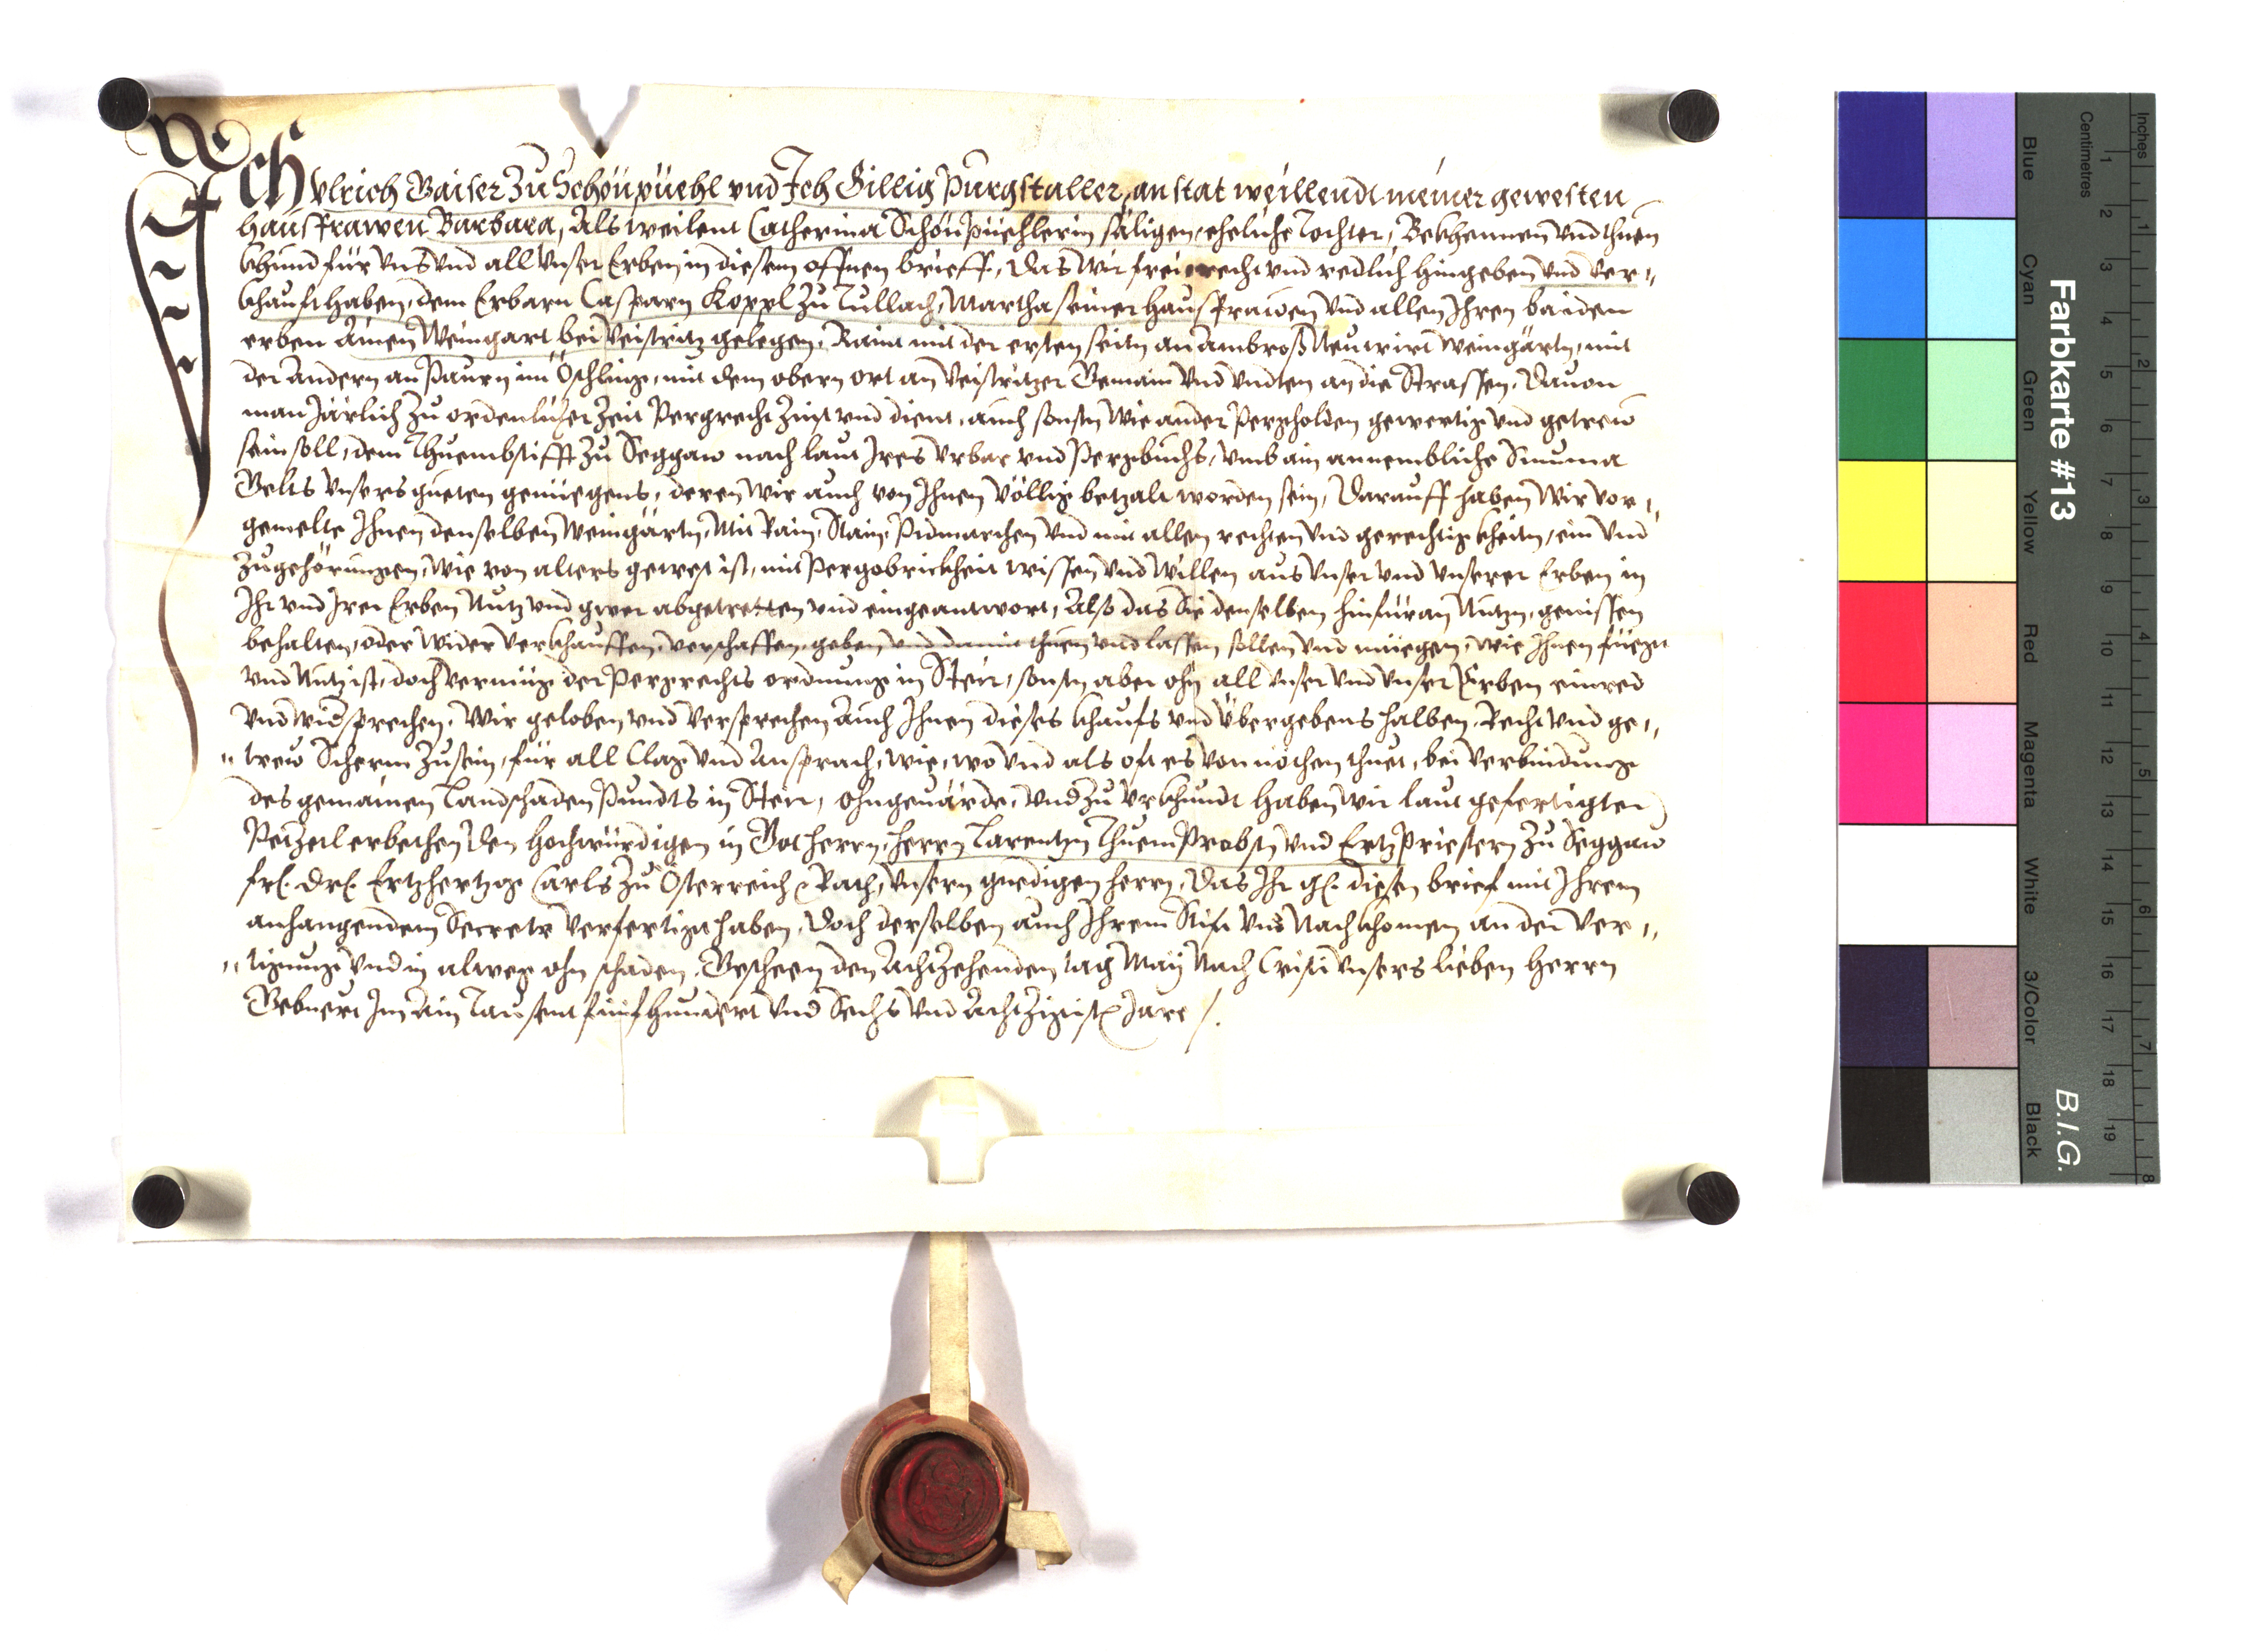 Ich Vlrich Gaiser zu Schönpüehl vnd Ich Gillig Purgstaller, an stat weillendt meiner gewesten
hausfrawen Barbara, Als weilent Catherina Schönpüchlerin säligen, eheliche Tochter, Bekhennen vnd thuen
khund für vns vnd all vnser Erben in diesem offnen brieff, Das wir frei recht vnd redlich hingeben vnd ver„
khaufft haben, dem Erbarn Casparn Koppl zu Tullach, Martha seiner hausfrawen vnd allen Ihren baiden
erben Ainen Weingart bei Veistritz gelegen, Raint mit der ersten seitn an Ambroß Neuwirt weingärtn, mit
der Andern an Paurn im Öschling, mit dem obern ort an Veistritzer Gemain vnd vndten an die Strassen, Dauon
man Järlich zu ordenlicher zeit Pergrecht zinst vnd dient, auch sonsten wie ander Pergholden gewertig vnd getrew
sein soll, dem Thuembstifft zu Seggaw nach laut Ires vrbar vnd Pergbuchs, vmb ain annembliche Summa
Gelts vnsers gueten genüegens, deren wir auch von Ihnen völlig betzalt worden sein, Darauff haben wir vor„
gemelte Ihnen denselben weingärtn, Mit Rain, Stain, Pidmarchen vnd mit allen rechten vnd gerechtigkheitn, ein vnd
zugehörungen, wie von alters gewest ist, mit Pergobrickheit wissen vnd willen aus vnser vnd vnserer Erben in
Ihr vnd Irer Erben Nutz vnd gwer abgetretten vnd eingeantwort, Also das Sie denselben hinfüran Nutzn, geniessen
behalten, oder wider verkhauffen, verschaffen, geben vnd damit thuen vnd lassen sollen vnd müegen, wie Ihnen füegt
vnd Nutz ist, doch vermüg der Pergrechts ordnung in Steir, sonsten aber ohn all vnser vnd vnser Erben einred
vnd widsprechen. Wir geloben vnd versprechen Auch Ihnen dieses khaufs vnd Übergebens halben, Recht vnd ge„
„trew Scherm zusein, für all Clag vnd Ansprach, wie, wo vnd als oft es von nöthen thuet, bei verbindung
des gemainen Landschaden Pundts in Steir, ohngeuärde, vnd zu vrkhundt haben wir laut gefertigter
Petzetl erbethen den hochwürdigen in Got herrn, herrn Larentzn Thuem Probstn vnd Ertzpriestern zu Seggaw
frl. Drl. Ertzhertzog Carls zu Österreich Rath, vnsern gnedigen herrn, Das Ihr gl. diesen brief mit Ihrem
anhangendem Secrete verfertigt haben, Doch derselben auch Ihrem Stift vnd Nachkhomen an der ver„
„tigung vnd in alweg ohn schaden. Gescheen den Achtzehenden tag May Nach Cristi vnsers lieben herrn
Gebuert Im Ain Tausent fünfhundert vnd Sechs vnd Achtzigistn Jare /.
Farbkarte #13
B.I.G.
Inches
Centimetres
1 2 3 4 5 6 7 8
1 2 3 4 5 6 7 8 9 10 11 12 13 14 15 16 17 18 19
Blue
Cyan
Green
Yellow
Red
Magenta
White
3/Color
Black